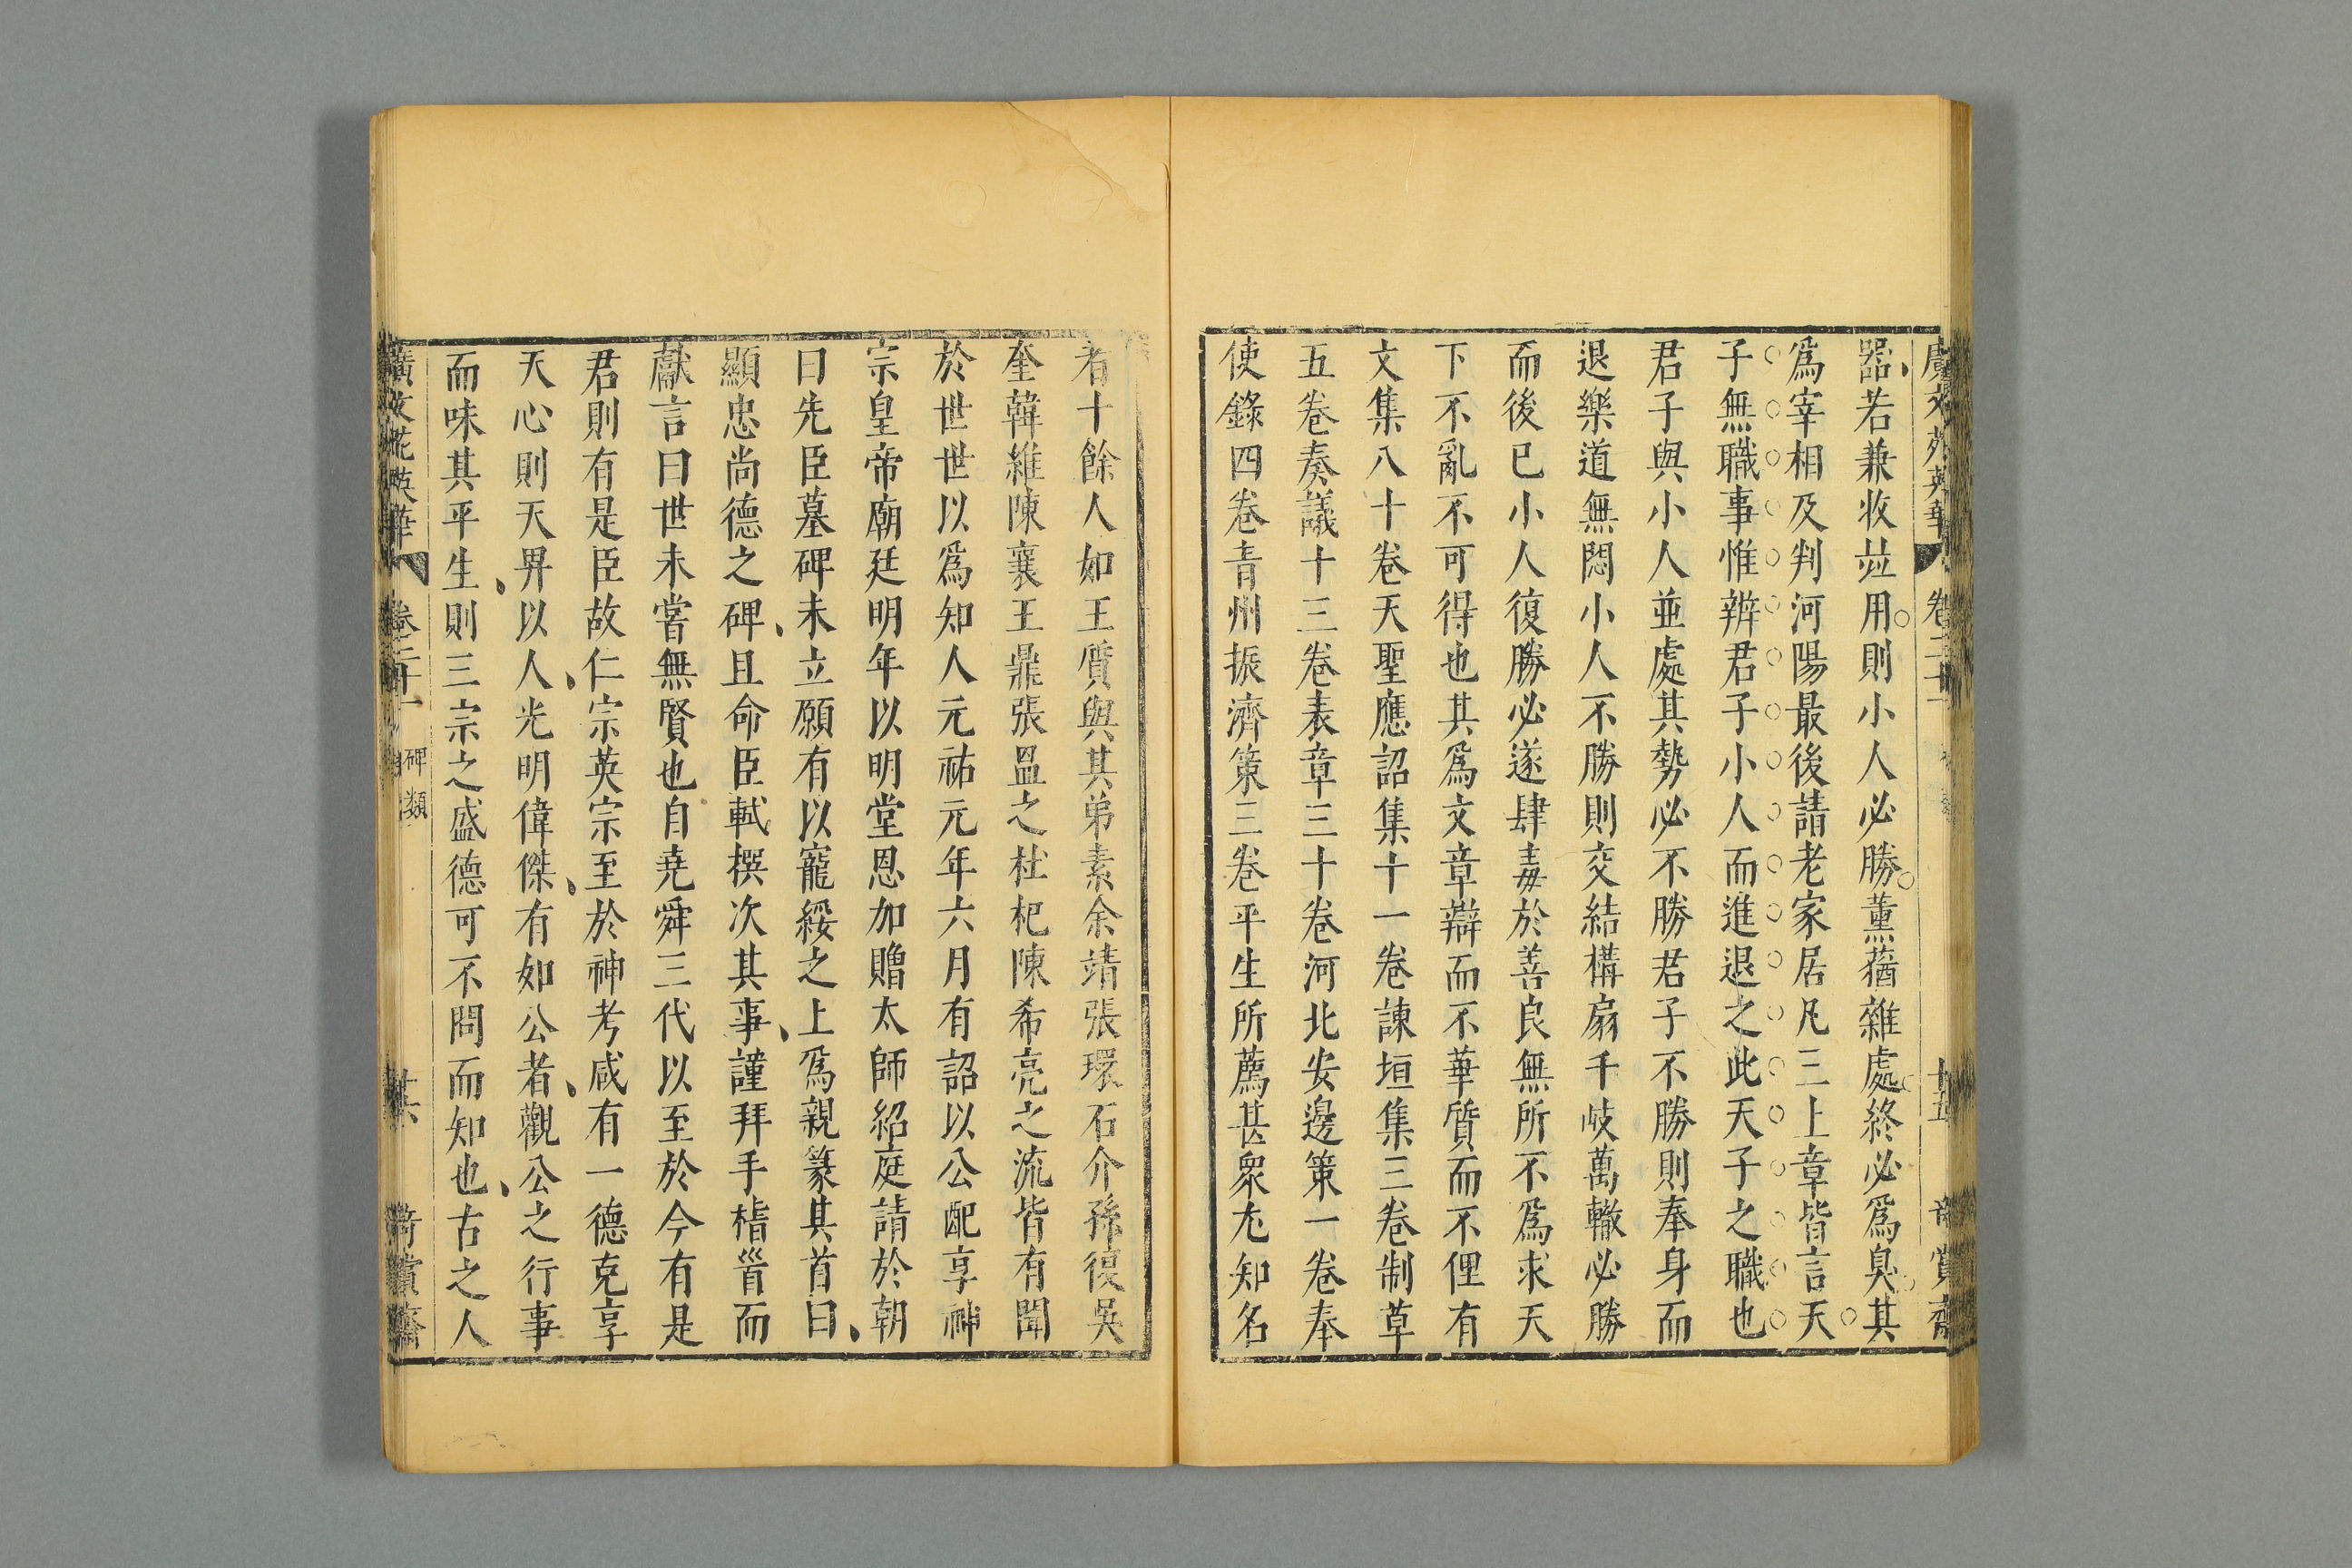 廣文苑英華 卷二十一 十五 賞齋
器若兼收並用則小人必勝薰蕕雜處終必爲臭其
爲宰相及判河陽最後請老家居凡三上章皆言天
子無職事惟辨君子小人而進退之此天子之職也
君子與小人並處其勢必不勝君子不勝則奉身而
退樂道無悶小人不勝則交結構扇千岐萬轍必勝
而後已小人復勝必遂肆毒於善良無所不爲求天
下不亂不可得也其爲文章辯而不華質而不俚有
文集八十卷天聖應詔集十一卷諫垣集三卷制草
五卷奏議十三卷表章三十卷河北安邊策一卷奉
使錄四卷青州振濟策三卷平生所薦甚衆尤知名
者十餘人如王質與其弟素余靖張環石介孫復吳
奎韓維陳襄王鼎張昷之杜杞陳希亮之流皆有聞
於世世以爲知人元祐元年六月有詔以公配享神
宗皇帝廟廷明年以明堂恩加贈太師紹庭請於朝
曰先臣墓碑未立願有以寵綏之上爲親篆其首曰
顯忠尚德之碑且命臣軾撰次其事謹拜手稽首而
獻言曰世未嘗無賢也自堯舜三代以至於今有是
君則有是臣故仁宗英宗至於神考咸有一德克享
天心則天畀以人光明偉傑有如公者觀公之行事
而味其平生則三宗之盛德可不問而知也古之人
廣文苑英華 卷二十一 碑類 十六 奇賞齋